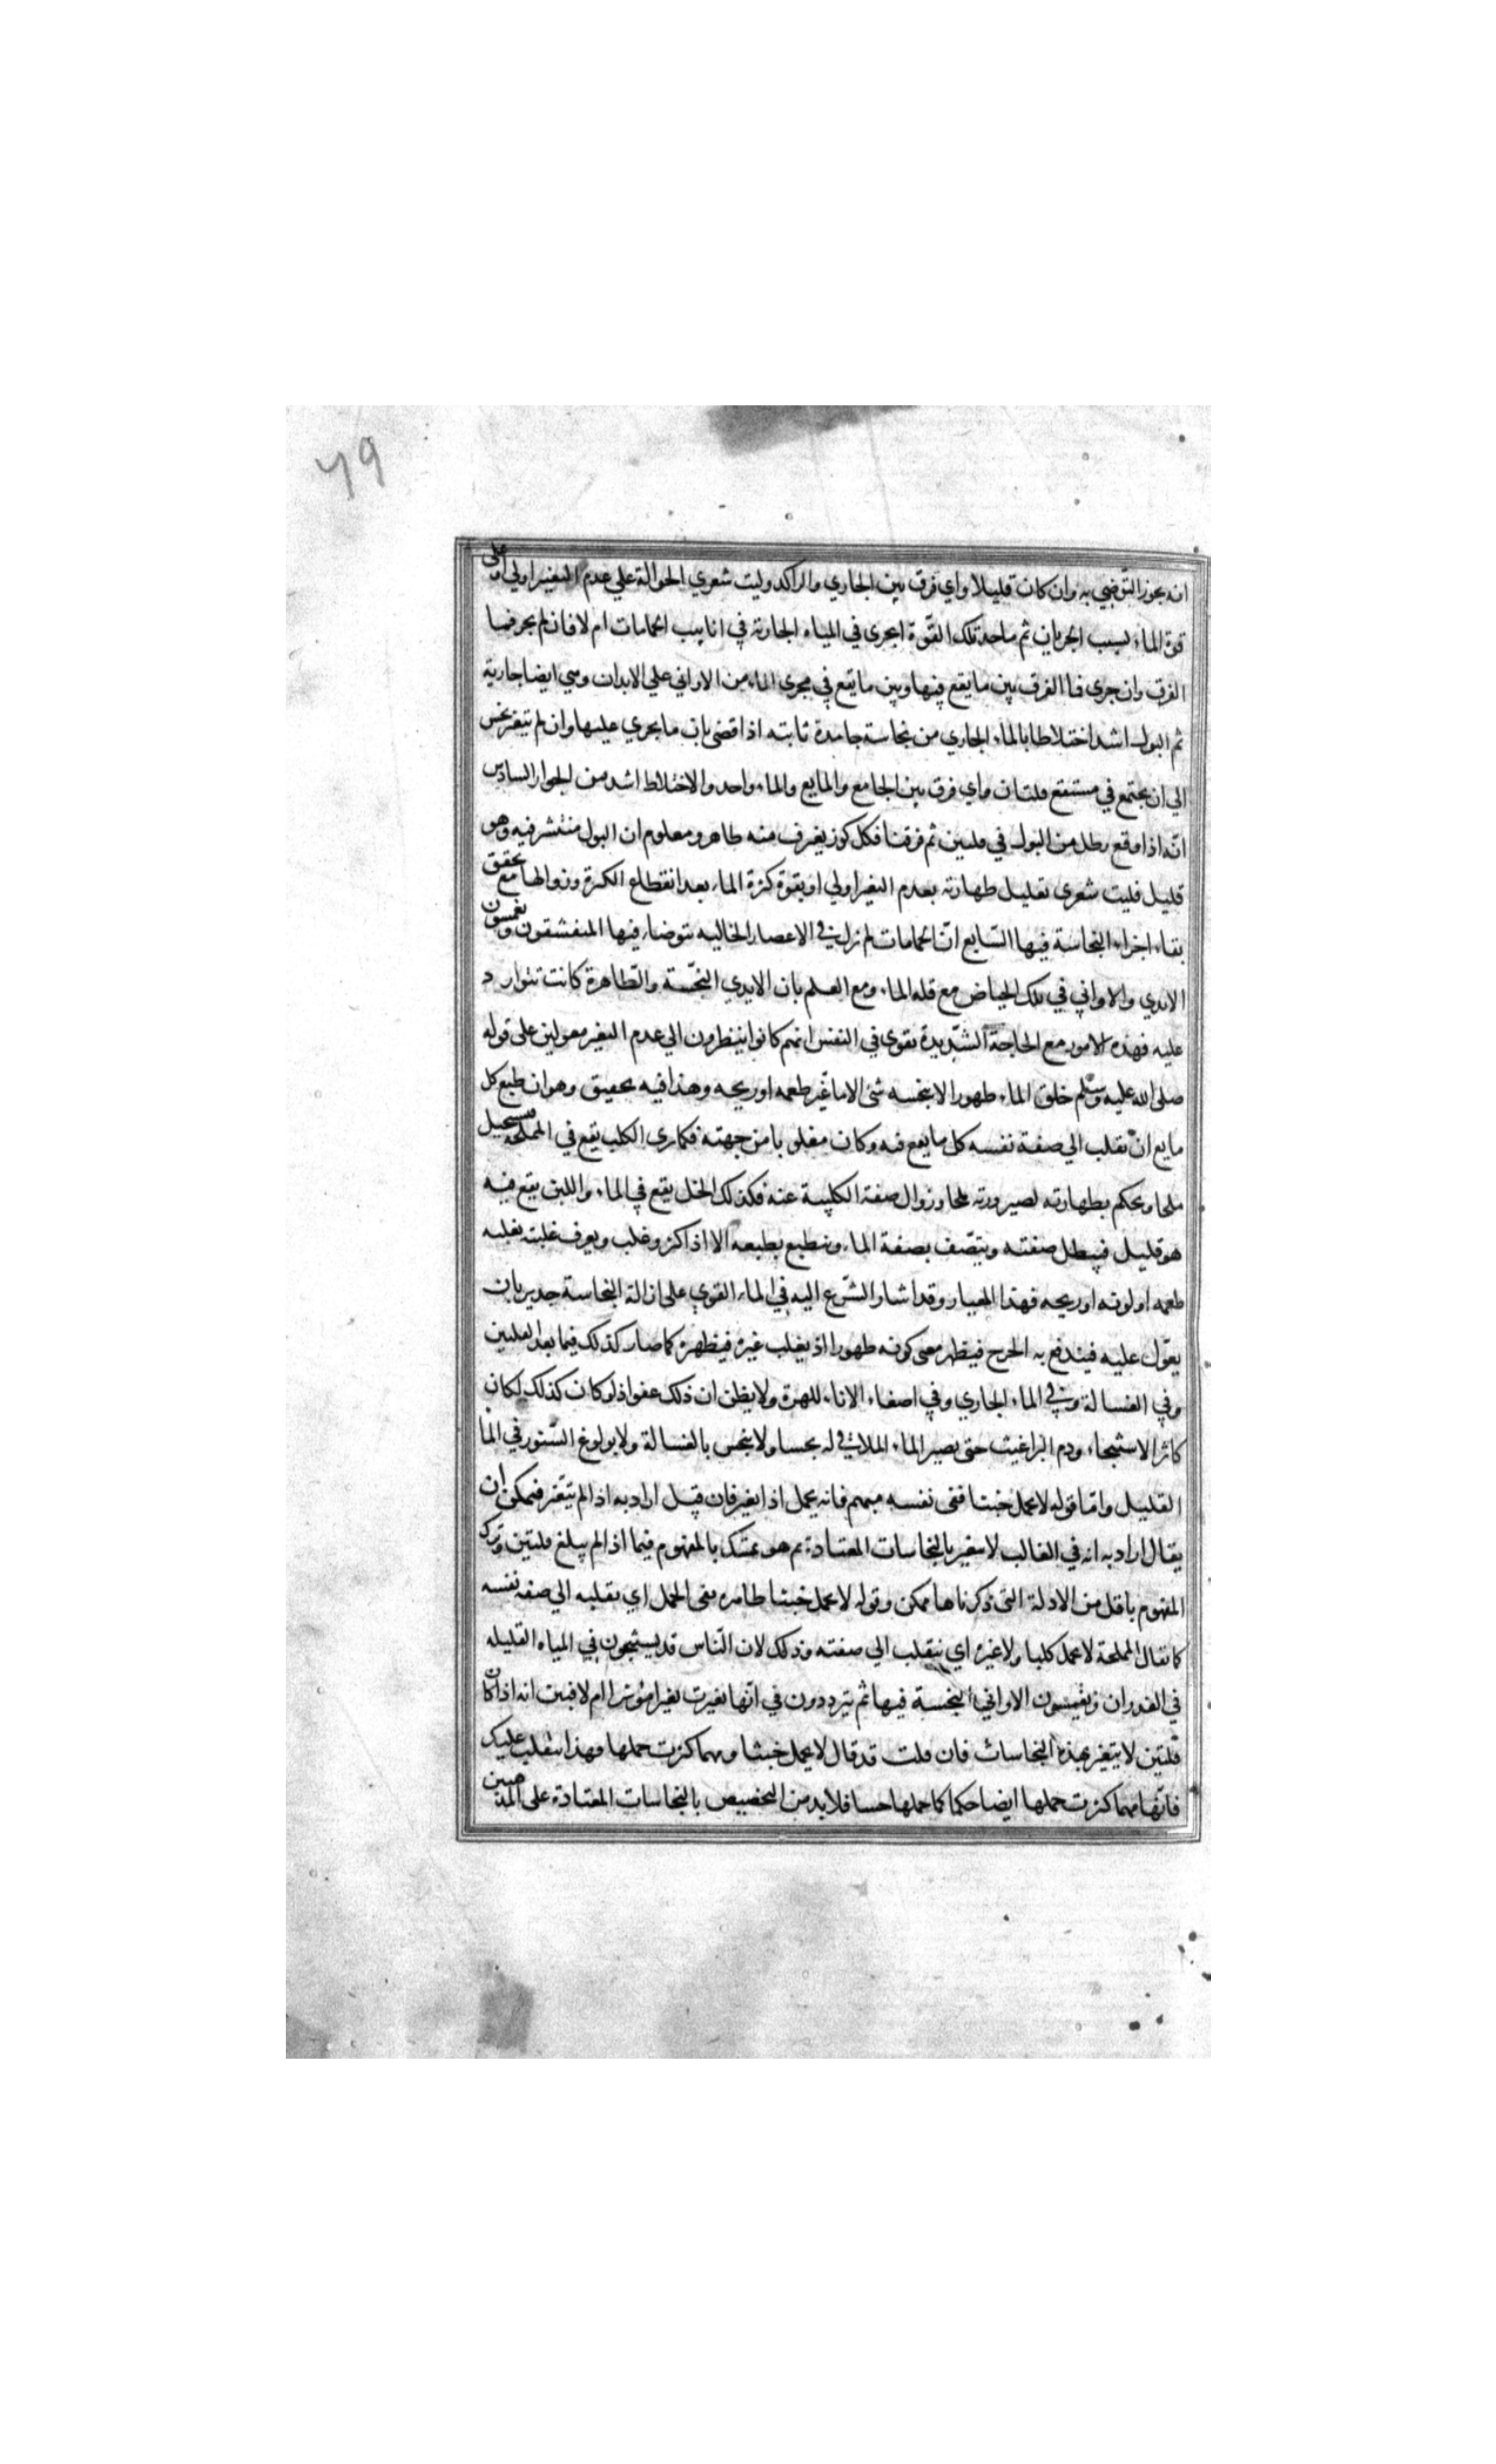 ٦٩
انه يجوز التوضي به وان كان قليلا واي فرق بين الجاري والراكد وليت شعري الحوالة علي عدم التغير اولي او علي
قوة الماء بسبب الجريان ثم ما حد تلك القوة ايجرى في المياه الجارية في انابيب الحمامات ام لا فان لم يجر فما
الفرق وان جرى فما الفرق بين ما يقع فيها وبين ما يقع في مجرى الماء من الاواني علي الابدان وهي ايضا جارية
ثم البول اشد اختلاطا بالماء الجاري من نجاسة جامدة ثابته اذا قضى بان ما يجري عليها وان لم يتغير نجس
الي ان يجتمع في مستنقع قلتان واي فرق بين الجامع والمايع والماء واحد والاختلاط اشد من الجوار السادس
انه اذا وقع رطل من البول في قلتين ثم فرقتا فكل كوز يغرف منه طاهر ومعلوم ان البول منتشر فيه وهو
قليل فليت شعرى تعليل طهارته بعدم التغير اولي او بقوة كثرة الماء بعد انقطاع الكثرة وزوالها مع تحقق
بقاء اجزاء النجاسة فيها السابع ان الحمامات لم تزل في الاعصار الخاليه يتوضاء فيها المتقشفون ويغمسون
الايدي والاواني في تلك الحياض مع قلة الماء ومع العلم بان الايدي النجسة والطاهرة كانت تتوارد
عليه فهذه الامور مع الحاجة الشديدة تقوى في النفس انهم كانوا ينظرون الي عدم التغير معولين على قوله
صلى الله عليه وسلم خلق الماء طهورا لا ينجسه شئ الا ما غير طعمه او ريحه وهذا فيه تحقيق وهو ان طبع كل
مايع ان يقلب الي صفة نفسه كل ما يقع فيه وكان مغلوبا من جهته فكما ترى الكلب يقع في المملحة فيستحيل
ملحا ويحكم بطهارته لصيرورته ملحا وزوال صفة الكلبية عنه فكذلك الخل يقع في الماء واللبن يقع فيه
هو قليل فيبطل صفته ويتصف بصفة الماء وينطبع بطبعه الا اذا كثر وغلب ويعرف غلبته بغلبه
طعمه او لونه او ريحه فهذا المعيار وقد اشار الشرع اليه في الماء القوي على ازالة النجاسة جدير بان
يعول عليه فيندفع به الحرج فيظهر معى كونه طهورا اذ يغلب غيره فيطهره كما صار كذلك فيما بعد القلتين
وفي الغسالة وفي الماء الجاري وفي اصغاء الاناء للهرة ولا يظن ان ذلك عفو اذ لو كان كذلك لكان
كاثر الاستنجاء ودم البراغيث حتى يصير الماء الملاقي له نجسا ولا ينجس بالغسالة ولا بولوغ السنور في الماء
القليل واما قوله لا يحمل خبثا ففى نفسه مبهم فانه يحمل اذا تغير فان قيل اراد به اذا لم يتغير فيمكن ان
يقال اراد به انه في الغالب لا يتغير بالنجاسات المعتادة ثم هو تمسك بالمفهوم فيما اذا لم يبلغ قلتين وترك
المفهوم باقل من الادلة التى ذكرناها ممكن وقوله لا يحمل خبثا ظاهره نفى الحمل اي يقلبه الي صفه نفسه
كما يقال المملحة لا تحمل كلبا ولا غيره اي ينقلب الي صفته وذلك لان الناس قد يستنجون في المياه القليله
في الغدران ويغمسون الاواني النجسة فيها ثم يترددون في انها تغيرت تغيرا مؤثرا ام لا فبين انه اذا كان
قلتين لا يتغير بهذه النجاسات فان قلت قد قال لا يحمل خبثا ومهما كثرت حملها وهذا ينقلب عليك
فانها مهما كثرت حملها ايضا حكما كما حملها حسا فلا بد من التخصيص بالنجاسات المعتادة على المذهبين